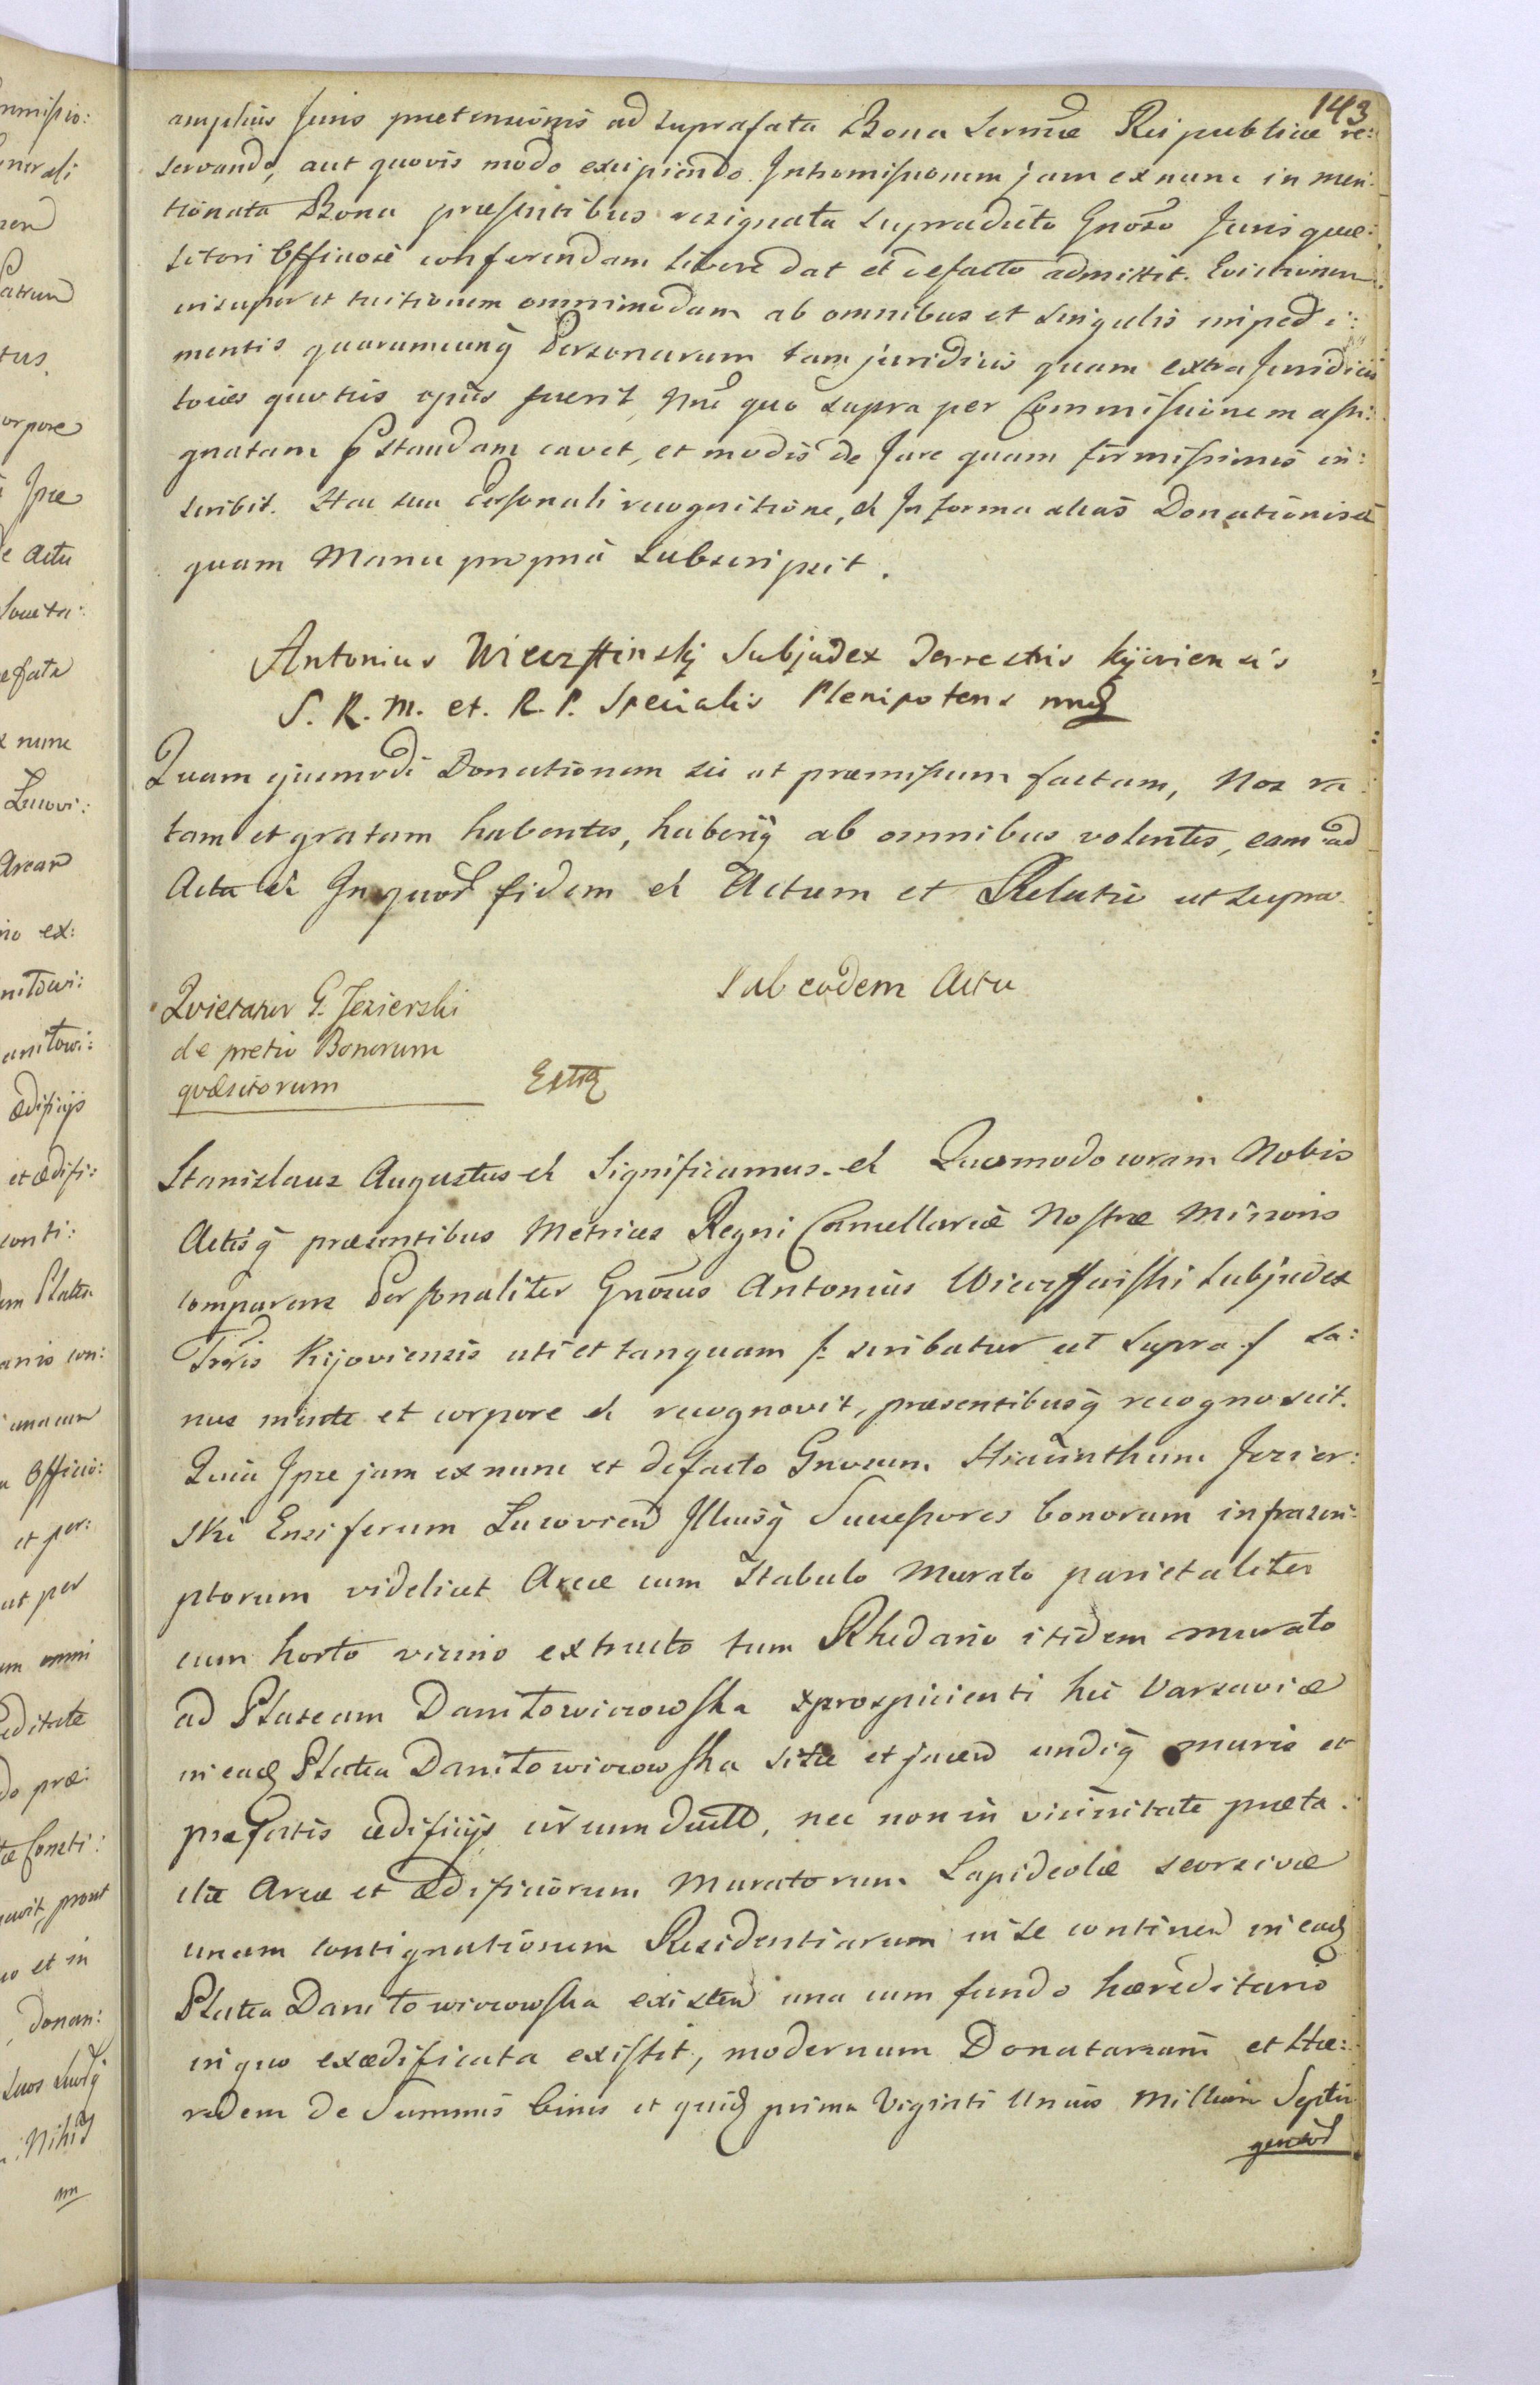 143
amplius Juris praetensionis ad suprafata Bona Sermae Reipublicae re:
servando, aut quovis modo excipiendo. Intromissionem jam ex nunc in men:
tionata Bona praesentibus resignata supradicto Gnoso Juris quae:
sitori Officiose conferendam libere dat et defacto admittit. Evictionem
insuper et tuitionem omnimodam ab omnibus et singulis impedi:
mentis quarumcunq Personarum tam juridicis quam extra Juridicis
toties quoties opus fuerit Nne quo supra per Commissionem assi:
gnatam pstandam cavet, et modis de Jure quam firmissimis in:
scribit. Hac sua Personali recognitione, et In forma alias Donationis et
quam Manu propria subscripsit.
Antonius Wieczffinskj Subjudex Terrestris Kijoviensis
S. R. M. et. R. P. Specialis Plenipotens mq
Quam ejusmodi Donationem sic ut praemissum factam, Nos ra:
tam et gratam habentes, haberiq ab omnibus volentes, eam ad
Acta et In quor fidem et Actum et Relatio ut supra
Sub eodem Actu
Quietatur G. Jezierski
de pretio Bonorum
quaesitorum
Extra
Stanislaus Augustus et Significamus et Quomodo coram Nobis
Actisq praesentibus Metrices Regni Cancellariae Nostrae Minoris
comparens Personaliter Gnosus Antonius Wieczffinski Subjudex
Trris Kijoviensis uti et tanquam /: scribatur ut supra :/ sa:
nus mente et corpore et recognovit, praesentibusq recognoscit.
Quia Ipse jam ex nunc et defacto Gnosum Hiacinthum Jezier:
ski Ensiferum Lucovien Illiusq Successores bonorum infrascri:
ptorum videlicet Areae cum Stabulo Murato parietaliter
cum horto vicino extructo tum Rhedario itidem murato
ad Plateam Daniłowiczowska prospicienti hic Varsaviae
in eaq Platea Daniłowiczowska sitae et jacen undiq muris et
praefatis aedificijs circumductae, nec non in vicinitate praeta:
ctae Areae et aedificiorum Muratorum Lapideolae seorsivae
unam contignationem Residentiarum in se continen in eaq
Platea Daniłowiczowska existen una cum fundo haereditario
in quo exaedificata existit, modernum Donatarium et Hae:
redem de Summis binis et quiq prima Viginti Unius Millium Septin
gentor